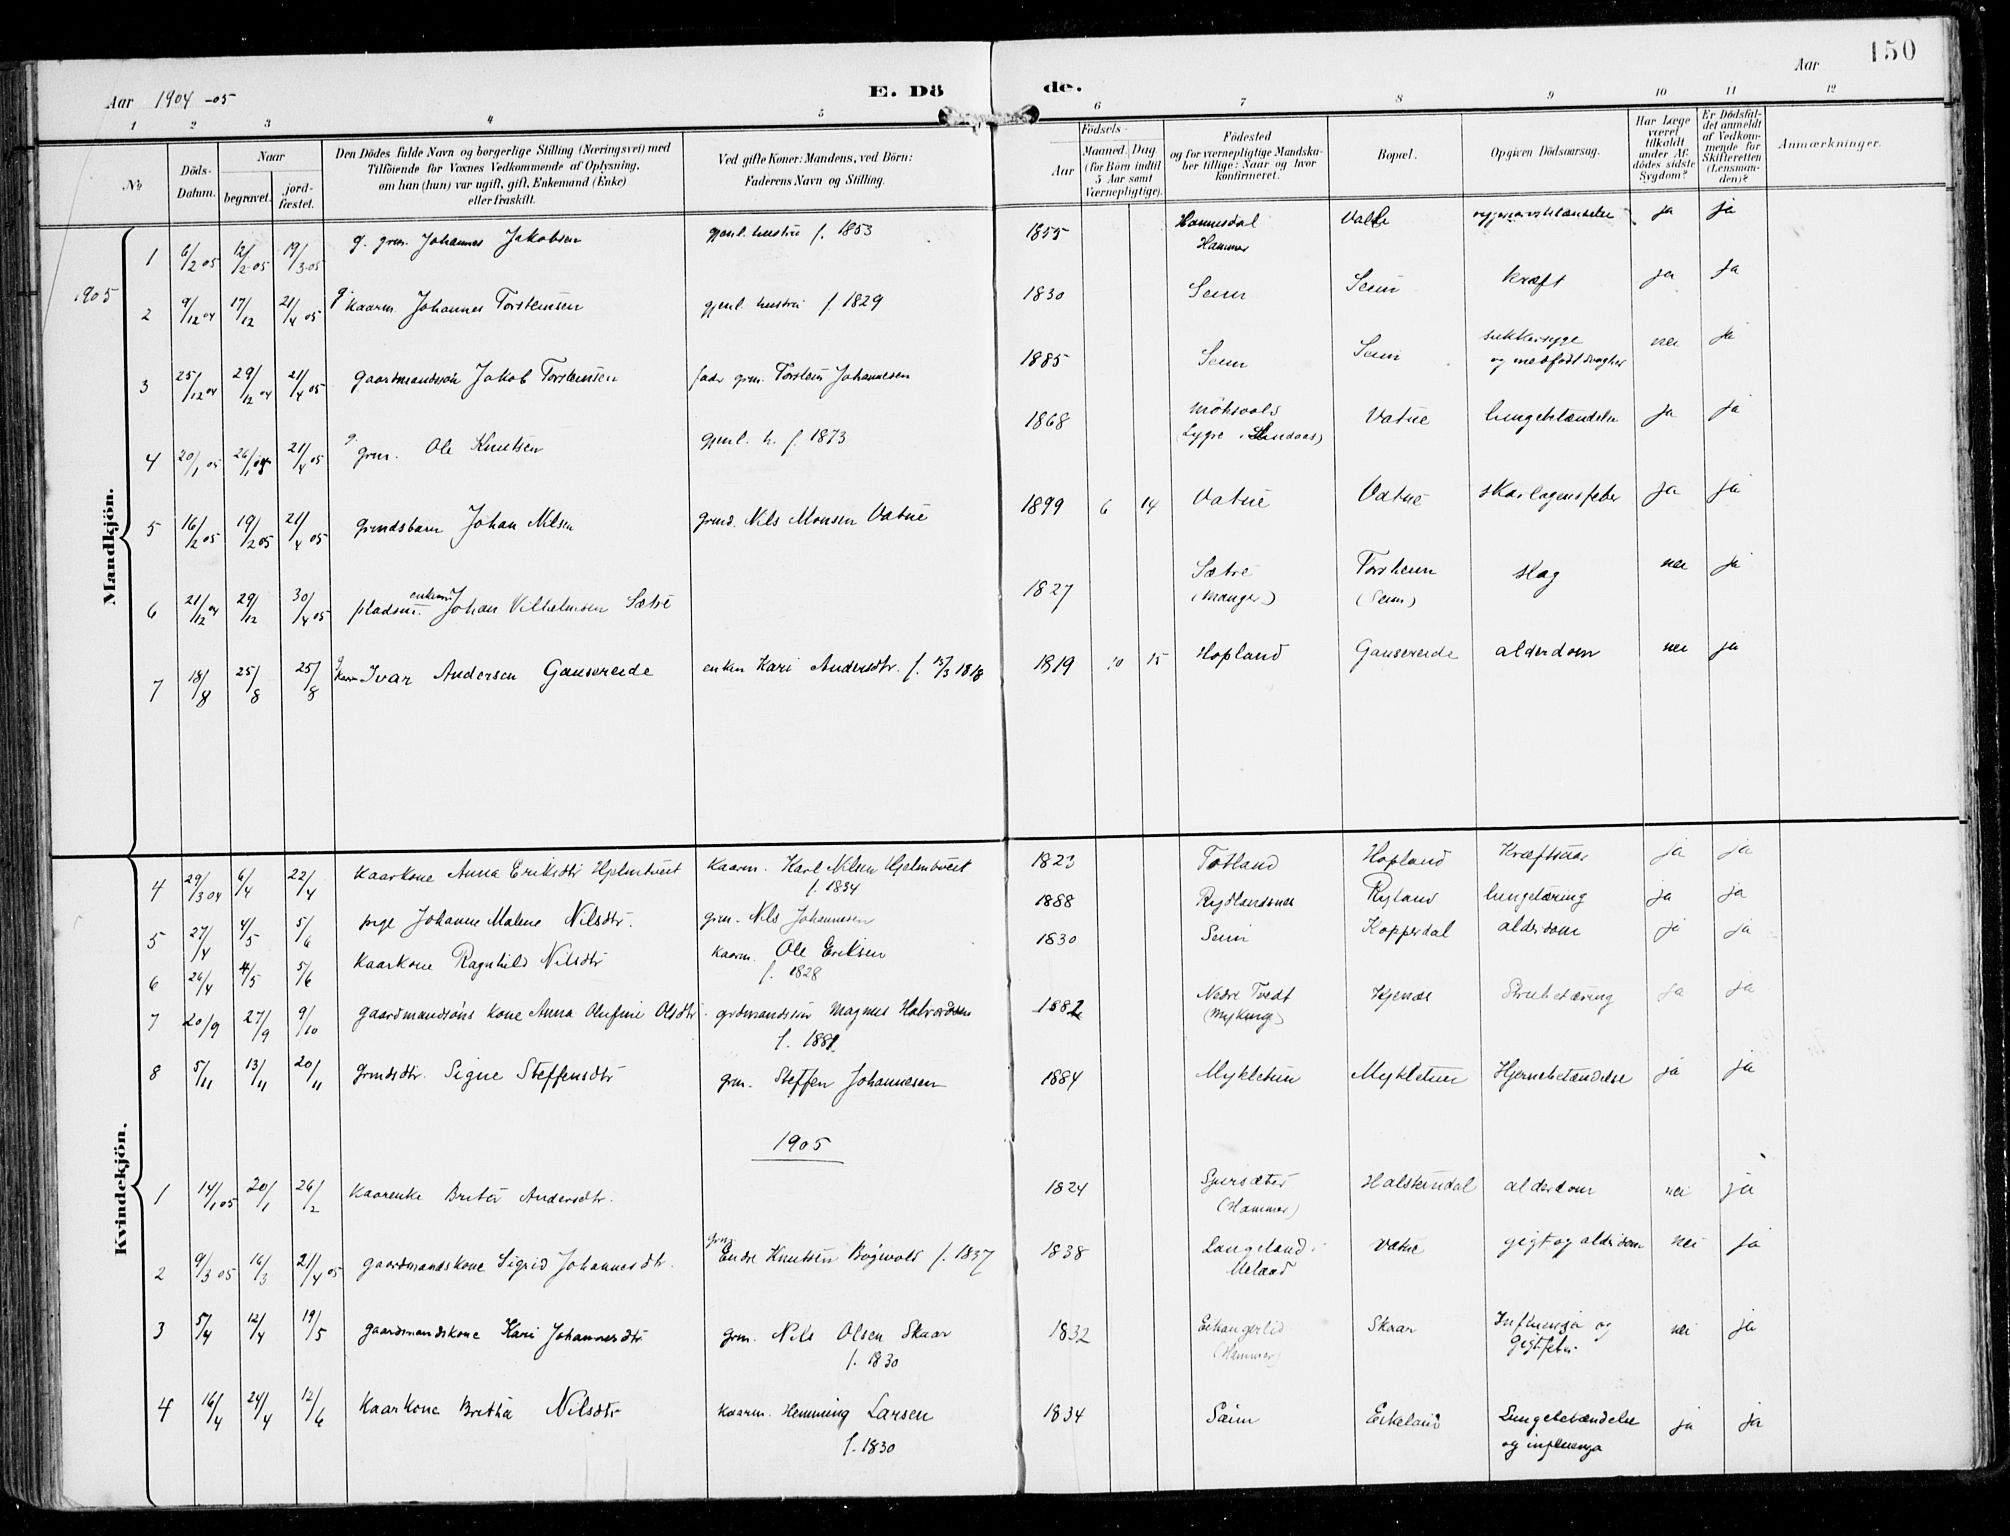 150
Aar 1904-05
E. Dö
de.
Aar
1 2 3 4 5 6 7 8 9 10 11 12
No
Döds-Datum.
Naar
begravet.
jord-fæstet.
Den Dödes fulde Navn og borgerlige Stilling (Næringsvei) med
Tilföiende for Voxnes Vedkommende af Oplysning,
om han (hun) var ugift, gift, Enkemand (Enke)
eller fraskilt.
Ved gifte Koner: Mandens, ved Börn:
Faderens Navn og Stilling.
Födsels-
Aar
Maaned. Dag.
(for Börn indtil
5 Aar samt
Værnepligtige).
Födested
og for værnepligtige Mandska-
ber tillige: Naar og hvor
konfirmeret.
Bopæl.
Opgiven Dödsaarsag.
Har Læge
været
tilkaldt
under Af-
dödes sidste
Sygdom?
Er Dödsfal-
det anmeldt
af Vedkom-
mende for
Skifteretten
(Lensman-
den)?
Anmærkninger.
Mandkjön.
1905
1 6/2 05 12/2 05 19/3 05 g. grm. Johannes Jakobsen gjenl. hustru f. 1853 1855 Hannisdal Hammer Valle ja ja
2 9/12 04 17/12 21/4 05 g. Kaarm. Johannes Torsteinsen gjenl. hustru f. 1829 1830 Seim Seim kræft ja ja
3 25/12 04 29/12 04 21/4 05 gaardmandssøn Jakob Torsteinsen fader grm. Torstein Johannesen 1885 Seim Seim sukkersyge og medfødt svaghed nei ja
4 20/1 05 26/1 05 21/4 05 g. grm. Ole Knutsen gjenl. h. f. 1873 1868 (Lygre i Lindaas) Vatne lungebetændelse ja ja
5 16/2 05 19/2 05 21/4 05 grmdsbarn Johan Nilsen grmd. Nils Monsen Vatne 1899 6 14 Vatne Vatne skarlagensfeber ja ja
6 21/12 04 29/12 30/4 05 pladsm. enkem. Johan Vilhelmsen Sætre 1827 Sætre (Manger) Torsheim (Seim) slag nei ja
7 18/8 25/8 25/8 g. Kaarm Ivar Andersen Gausereide enken Kari Andersdtr. f. 13/3 1818 1819 10 15 Hopland Gausereide alderdom nei ja
Kvindekjön.
4 29/3 04 6/4 22/4 Kaarkone Anna Eriksdtr Hjelmtveit Kaarm. Karl Nilsen Hjelmtveit f. 1834 1823 Totland Hopland Kræftsaar ja ja
5 27/4 4/5 5/6 pige Johanne Malene Nilsdtr. grm. Nils Johannesen 1888 Rydlandsnes Ryland lungetæring ja ja
6 26/4 4/5 5/6 Kaarkone Ragnhild Nilsdtr Kaarm. Ole Eriksen f. 1828 1830 Seim Kopperdal alderdom ja ja
7 20/9 27/9 9/10 gaardmandsøns kone Anna Olufine Olsdtr. grdmandssøn Magnus Halvordsen f. 1881 1882 Nedre Tvedt (Myking) Kjenes Strubetæring ja ja
8 5/11 13/11 20/11 grmdsdtr. Signe Steffensdtr grm. Steffen Johannesen 1884 Mykletun Mykletun Hjernebetændelse ja ja
1905
1 14/1 05 20/1 26/2 Kaarenke Brita Andersdtr. 1824 (Hammer) Halstendal alderdom nei ja
2 9/3 05 16/3 21/4 05 gaardmandskone Sigrid Johannesdtr. grm. Endre Knutsen Bøgevold f. 1837 1838 Langeland i Meland Vatne gigt og alderdom nei ja
3 5/4 12/4 19/5 gaardmandskone Kari Johannesdtr grm. Nils Olsen Skaar f. 1830 1832 Eikangerlid (Hammer) Skaar Influenza og Gigtfeber nei ja
4 16/4 24/4 12/6 Kaarkone Britha Nilsdtr Kaarm. Hemming Larsen f. 1830 1834 Seim Eikeland Lungebetændelse og influenza ja ja